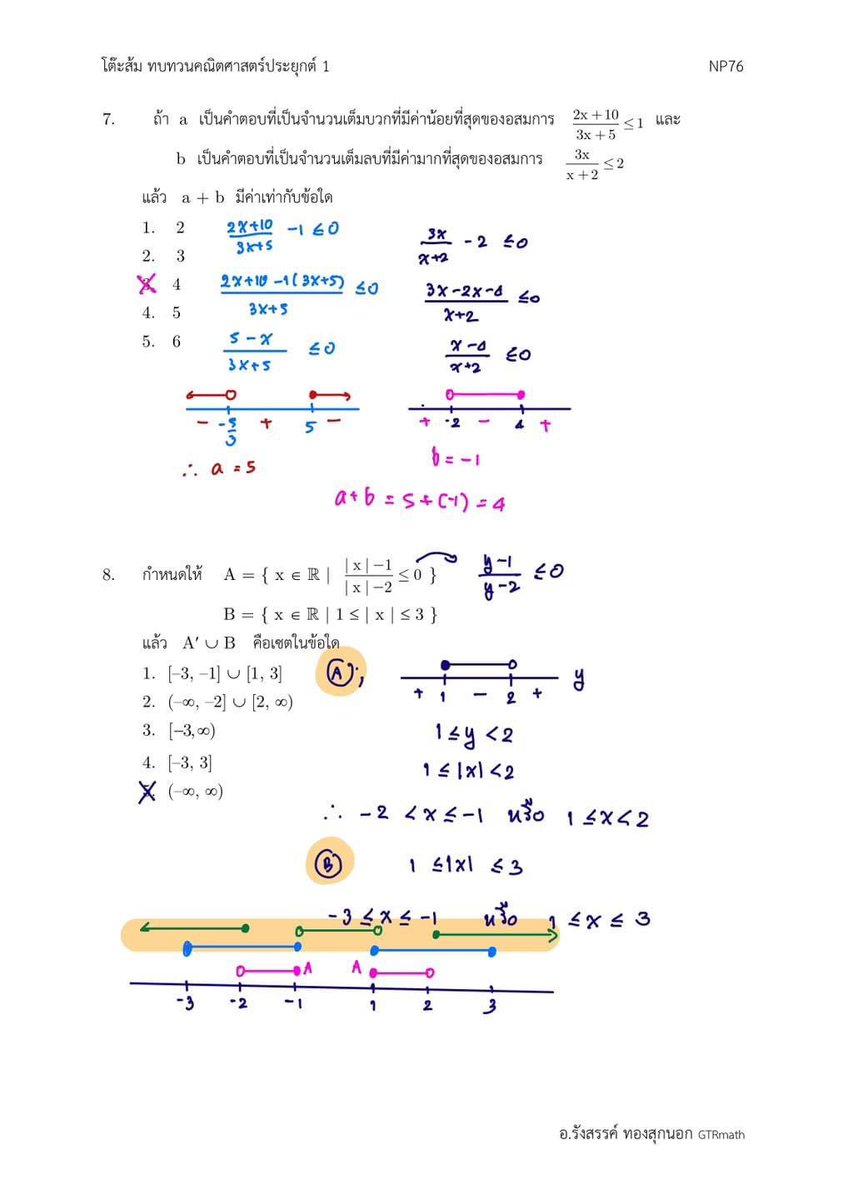 โต๊ะส้ม ทบทวนคณิตศาสตร์ประยุกต์ 1 NP76
7. ถ้า a เป็นคำตอบที่เป็นจำนวนเต็มบวกที่มีค่าน้อยที่สุดของอสมการ (2x + 10)/(3x + 5) ≤ 1 และ
b เป็นคำตอบที่เป็นจำนวนเต็มลบที่มีค่ามากที่สุดของอสมการ 3x/(x + 2) ≤ 2
แล้ว a + b มีค่าเท่ากับข้อใด
1. 2 (2x+10)/(3x+5) -1 ≤ 0 3x/(x+2) - 2 ≤ 0
2. 3
4 (2x+10 -1(3x+5))/(3x+5) ≤ 0 (3x-2x-4)/(x+2) ≤ 0
4. 5
5. 6 (5-x)/(3x+5) ≤ 0 (x-4)/(x+2) ≤ 0
- -5/3 + 5 - + -2 - 4 +
∴ a = 5 b = -1
a+b = 5+(-1) = 4
8. กำหนดให้ A = { x ∈ ℝ | (| x | −1)/(| x | −2) ≤ 0 } (y-1)/(y-2) ≤ 0
B = { x ∈ ℝ | 1 ≤ | x | ≤ 3 }
แล้ว A′ ∪ B คือเซตในข้อใด
1. [–3, –1] ∪ [1, 3] A ; + 1 - 2 + y
2. (–∞, –2] ∪ [2, ∞)
3. [–3, ∞) 1 ≤ y < 2
4. [–3, 3] 1 ≤ |x| < 2
(–∞, ∞)
∴ -2 < x ≤ -1 หรือ 1 ≤ x < 2
B 1 ≤ |x| ≤ 3
-3 ≤ x ≤ -1 หรือ 1 ≤ x ≤ 3
A A
-3 -2 -1 1 2 3
อ.รังสรรค์ ทองสุกนอก GTRmath